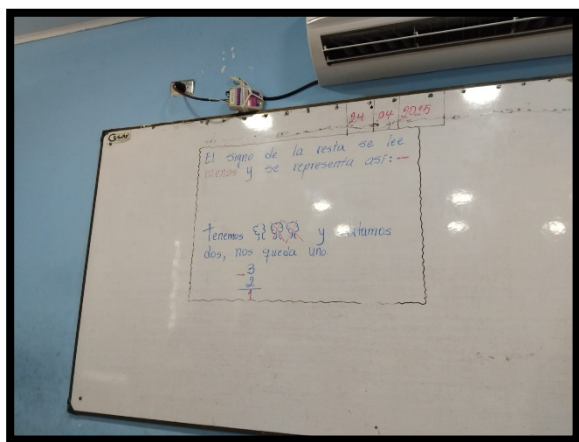 24 04 2025
El signo de la resta se lee
menos y se representa así: -
Tenemos y quitamos
dos, nos queda uno.
- 3
2
1